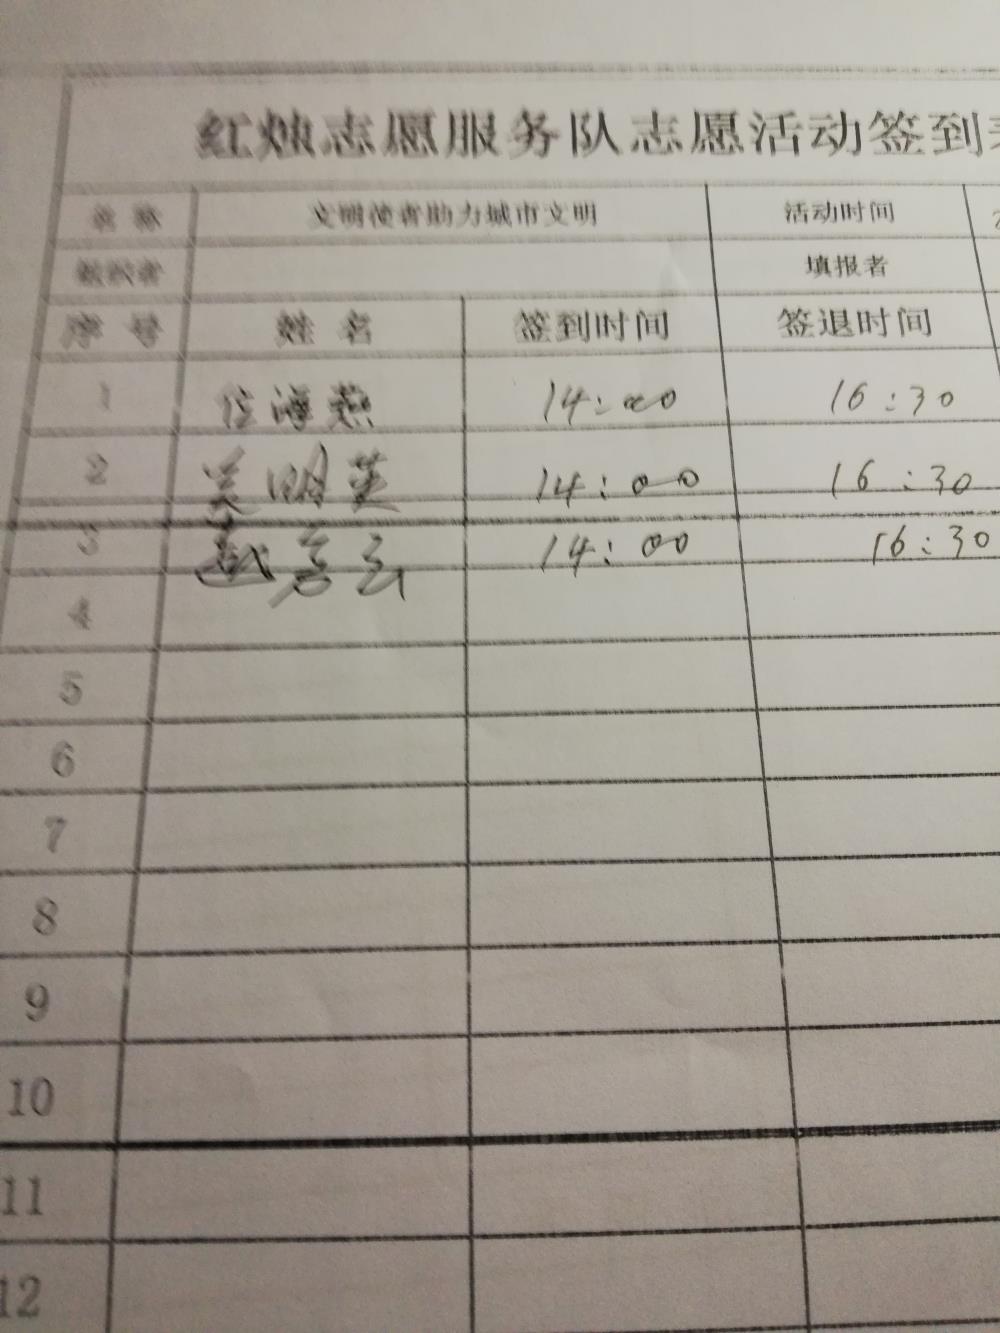 红烛志愿服务队志愿活动签到表
名 称 文明使者助力城市文明 活动时间
组织者 填报者
序 号 姓 名 签到时间 签退时间
1 位海燕 14:00 16:30
2 吴明英 14:00 16:30
3 14:00 16:30
4
5
6
7
8
9
10
11
12